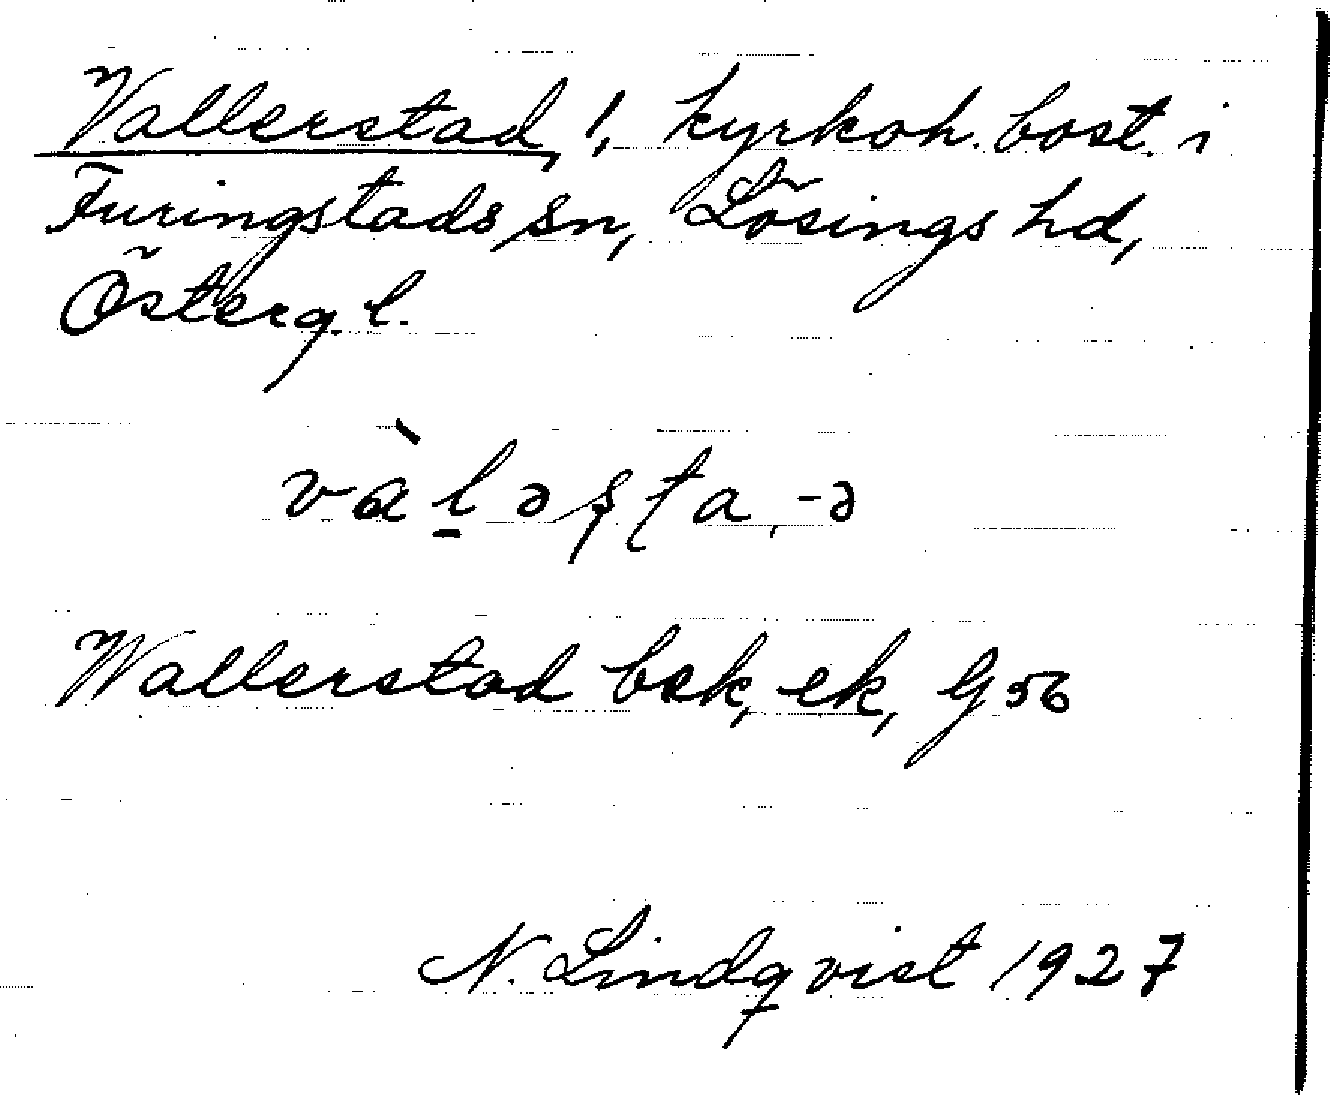 Vallerstad, 1, kyrkoh. bost. i
Furingstads sn, Lösings hd,
Österg. l.
vàl̠əṣṭa, -ə
Wallerstad bek, ek, G56
N. Lindqvist 1927